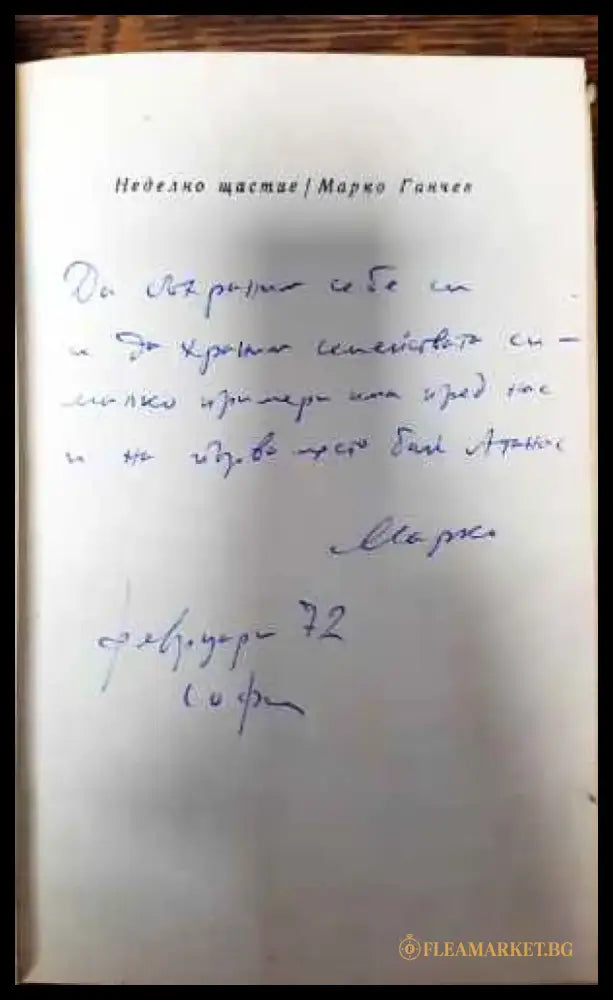 Неделно щастие / Марко Ганчев
Да съхраним себе си
и да храним семействата си –
малко примери има пред нас
и на първо място бай Атанас
Марко
февруари 72
София
FLEAMARKET.BG